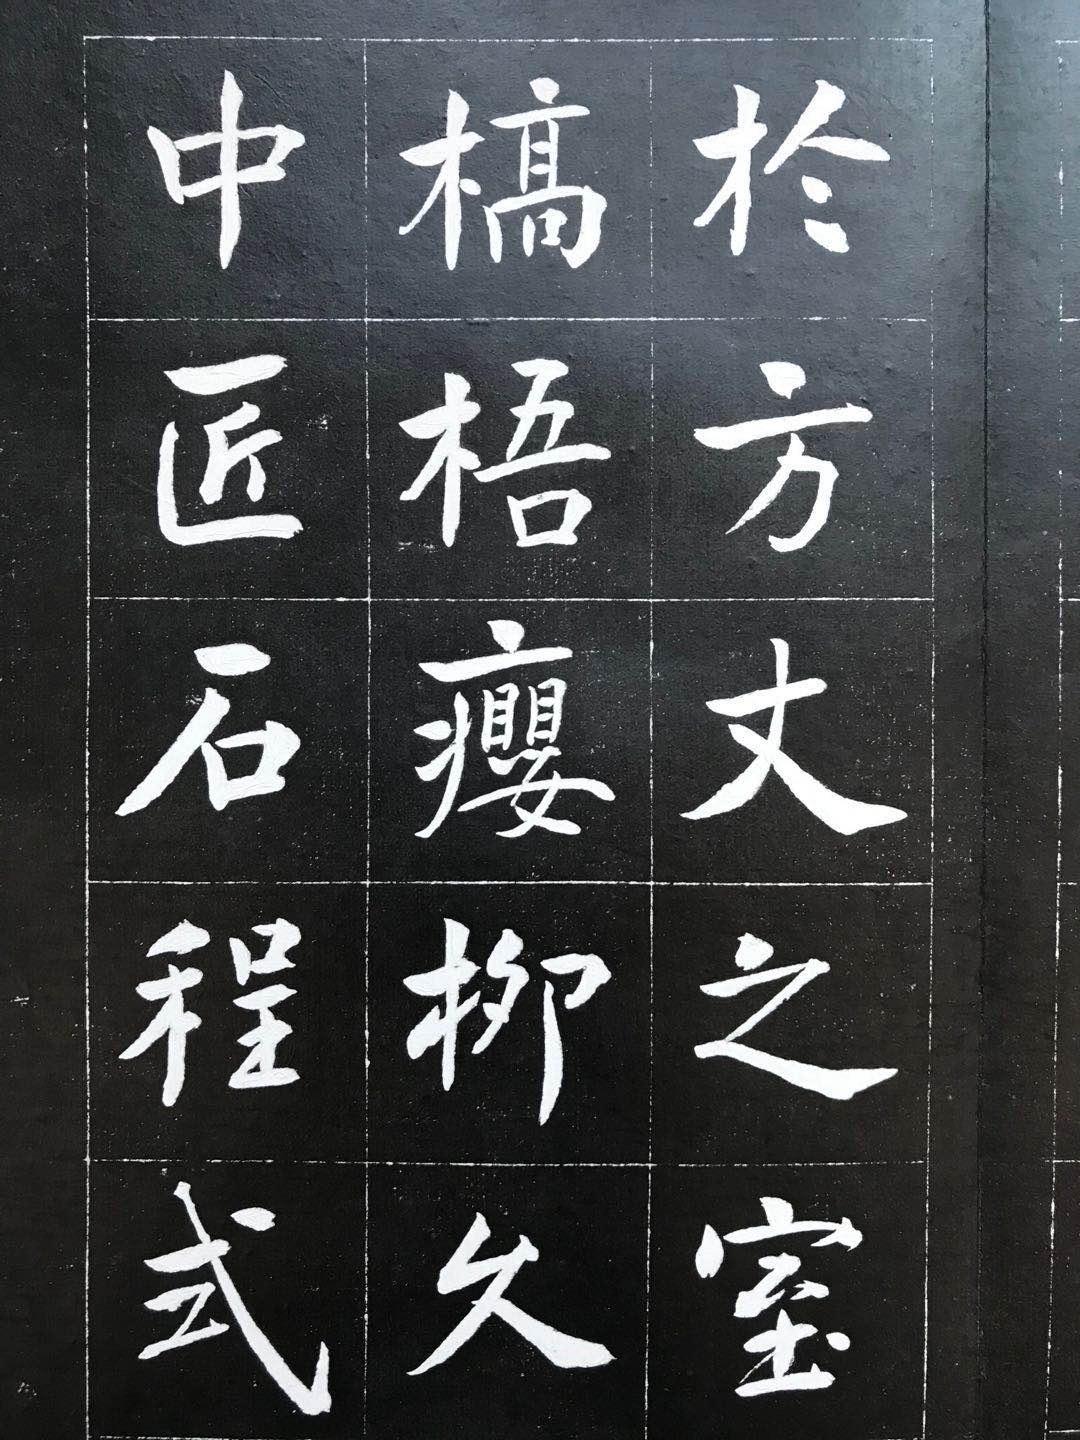 於方丈之室
槁梧癭柳久
中匠石程式